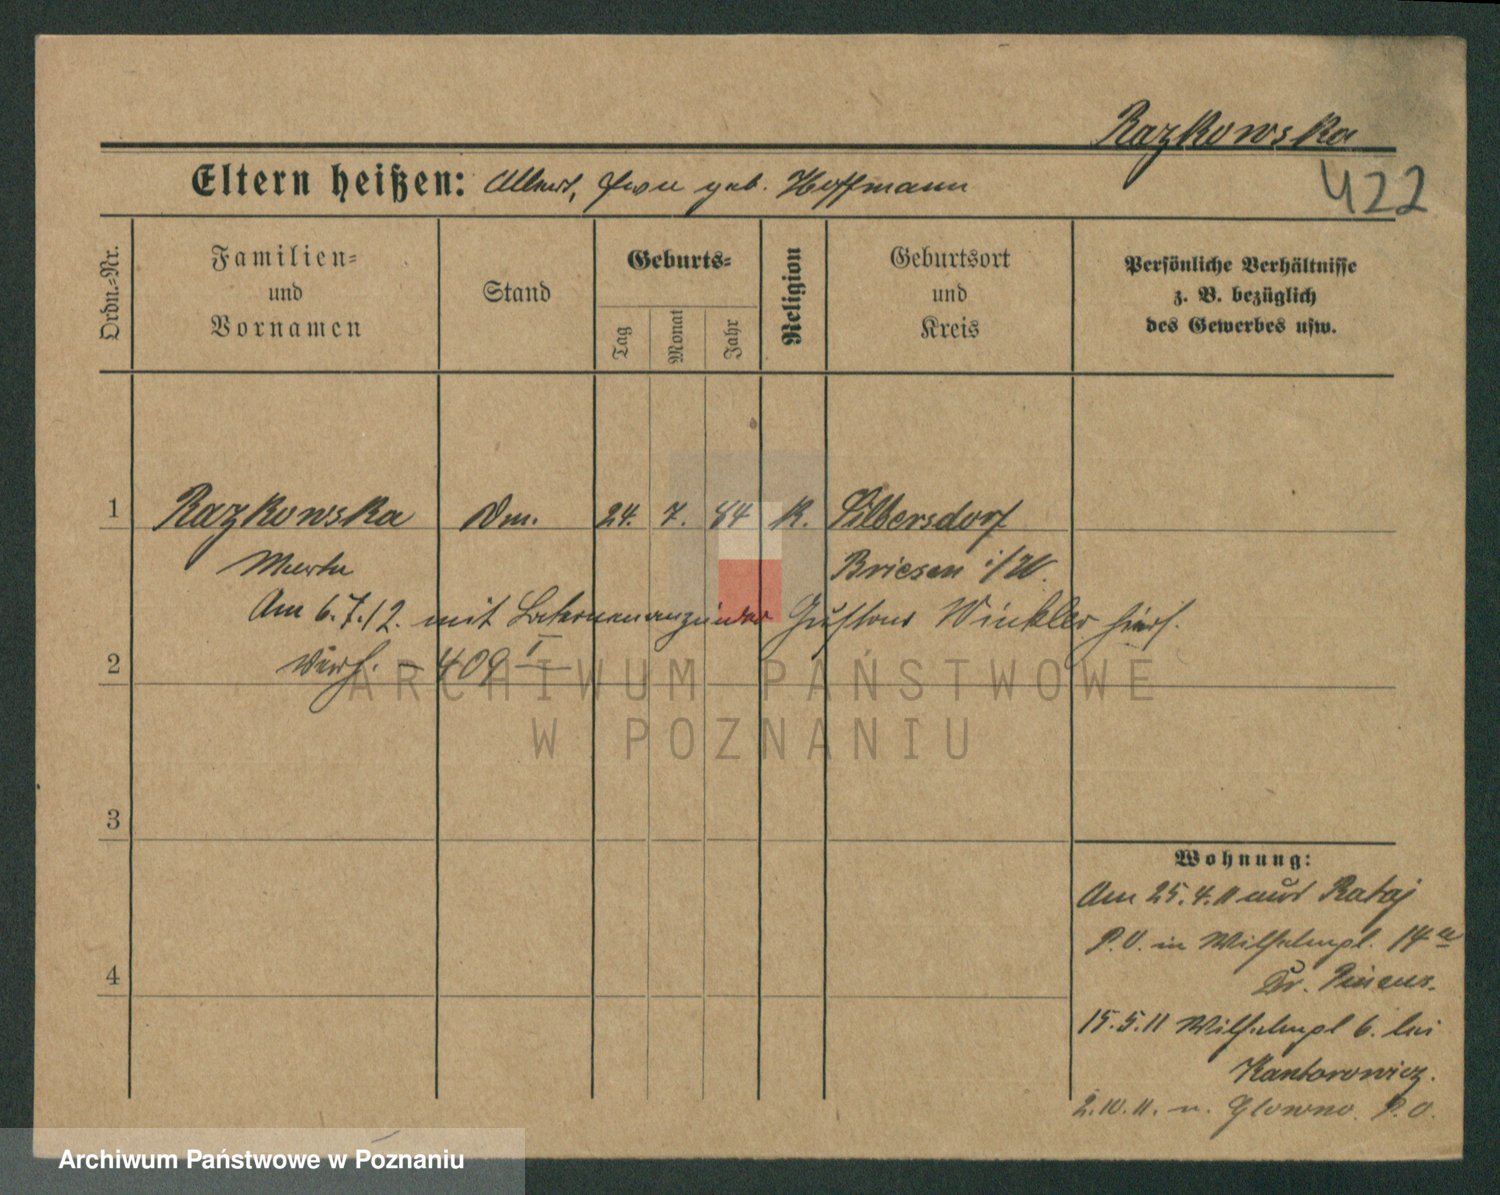 Razkowska
422
Eltern heißen: Albert, geb. Hoffmann
Ordn.-Nr.
Familien-
und
Vornamen
Stand
Geburts-
Tag
Monat
Jahr
Religion
Geburtsort
und
Kreis
Persönliche Verhältnisse
z. B. bezüglich
des Gewerbes usw.
1 Razkowska Dm. 24. 7. 84 K. Silbersdorf
Marta Briesen i/W.
Am 6.7.12. mit Laternenanzünder Gustav Winkler hier
2 verh. - 409 I
ARCHIWUM PAŃSTWOWE
W POZNANIU
3
Wohnung:
Am 25.4.11 aus Rataj
P.O. in Wilhelmpl. 14a
4
Dr. Pincus.
15.5.11 Wilhelmpl 6. bei
Kantorowicz.
2.10.11. n. Glowno P.O.
Archiwum Państwowe w Poznaniu